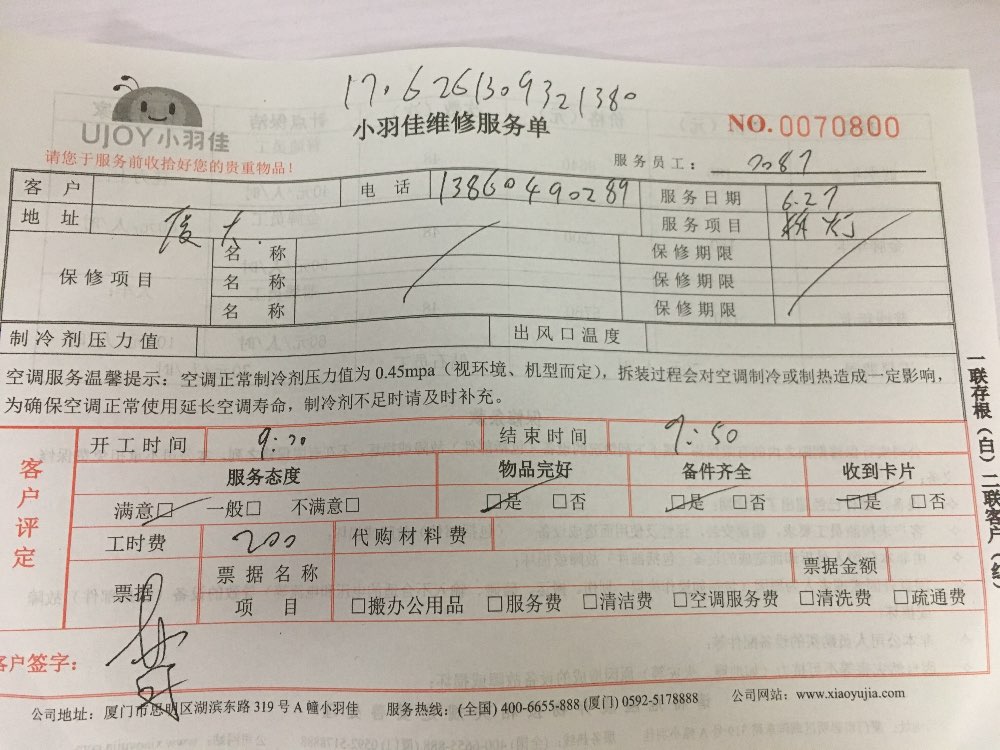 17.6261309321380
UJOY小羽佳
小羽佳维修服务单
NO.0070800
请您于服务前收拾好您的贵重物品！
服务员工： 7087
客 户 电 话 13860490289 服务日期 6.27
地 址 厦大. 服务项目 拆灯
保修项目 名 称 保修期限
名 称 保修期限
名 称 保修期限
制冷剂压力值 出风口温度
空调服务温馨提示：空调正常制冷剂压力值为 0.45mpa（视环境、机型而定），拆装过程会对空调制冷或制热造成一定影响，
为确保空调正常使用延长空调寿命，制冷剂不足时请及时补充。
客户评定
开工时间 9:20 结束时间 9:50
服务态度 物品完好 备件齐全 收到卡片
满意☐ 一般☐ 不满意☐ ☐是 ☐否 ☐是 ☐否 ☐是 ☐否
工时费 200 代购材料费
票据 票据名称 票据金额
项 目 ☐搬办公用品 ☐服务费 ☐清洁费 ☐空调服务费 ☐清洗费 ☐疏通费
客户签字：
公司地址：厦门市思明区湖滨东路 319 号 A 幢小羽佳 服务热线：(全国) 400-6655-888 (厦门) 0592-5178888 公司网站：www.xiaoyujia.com
一联存根（白）二联客户（红